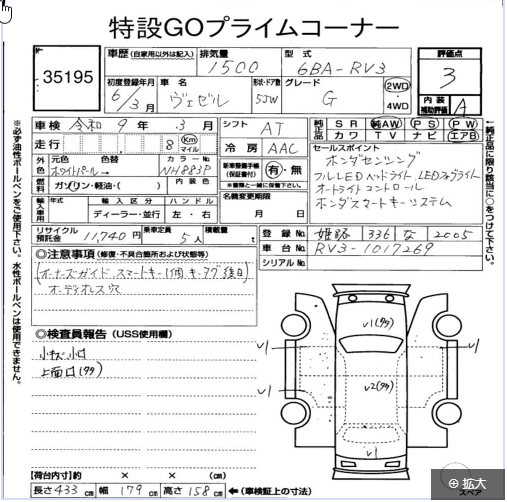 特設GOプライムコーナー
35195
車歴 (自家用以外は記入)
排気量 1500
型式 6BA-RV3
評価点 3
初度登録年月 6/3月
車名 ヴェゼル
形状・ドア数 5JW
グレード G
2WD・4WD
内装補助評価 A
車検 令和 9年 3月
シフト AT
純正品 SR 純AW PS PW
カワ TV ナビ エアB
走行 8 Km マイル
冷房 AAC
セールスポイント
ホンダセンシング
フルLEDヘッドライト、LEDフォグライト
オートライトコントロール
ホンダスマートキーシステム
外色 元色 色替 カラーNo.
ホワイトパール→ NH883P
新車整備手帳(保証書付) 有・無
※書類と一緒に保管下さい。
燃料 ガソリン・軽油・( ) 内装色
名義変更期限
月 日
輸入車用 年式 輸入区分 ハンドル
ディーラー・並行 左・右
リサイクル預託金 11,740円 乗車定員 5人 積載量 t
登録No. 姫路 336 な 2005
車台No. RV3-1017269
シリアルNo.
◎注意事項 (修復・不具合箇所および状態等)
(オーナーズガイド スマートキー1個 キータグ 後日)
オーディオレス 穴
◎検査員報告 (USS使用欄)
小キズ 小凹
上面凹(タタ)
v1(タタ)
v2(タタ)
v1
v1
v1
v1
スペア
【荷台内寸】 約 × × (cm)
長さ433cm 幅179cm 高さ158cm ←(車検証上の寸法)
※必ず油性ボールペンをご使用下さい。水性ボールペンは使用できません。
←純正品に限り該当に○をつけて下さい。
拡大